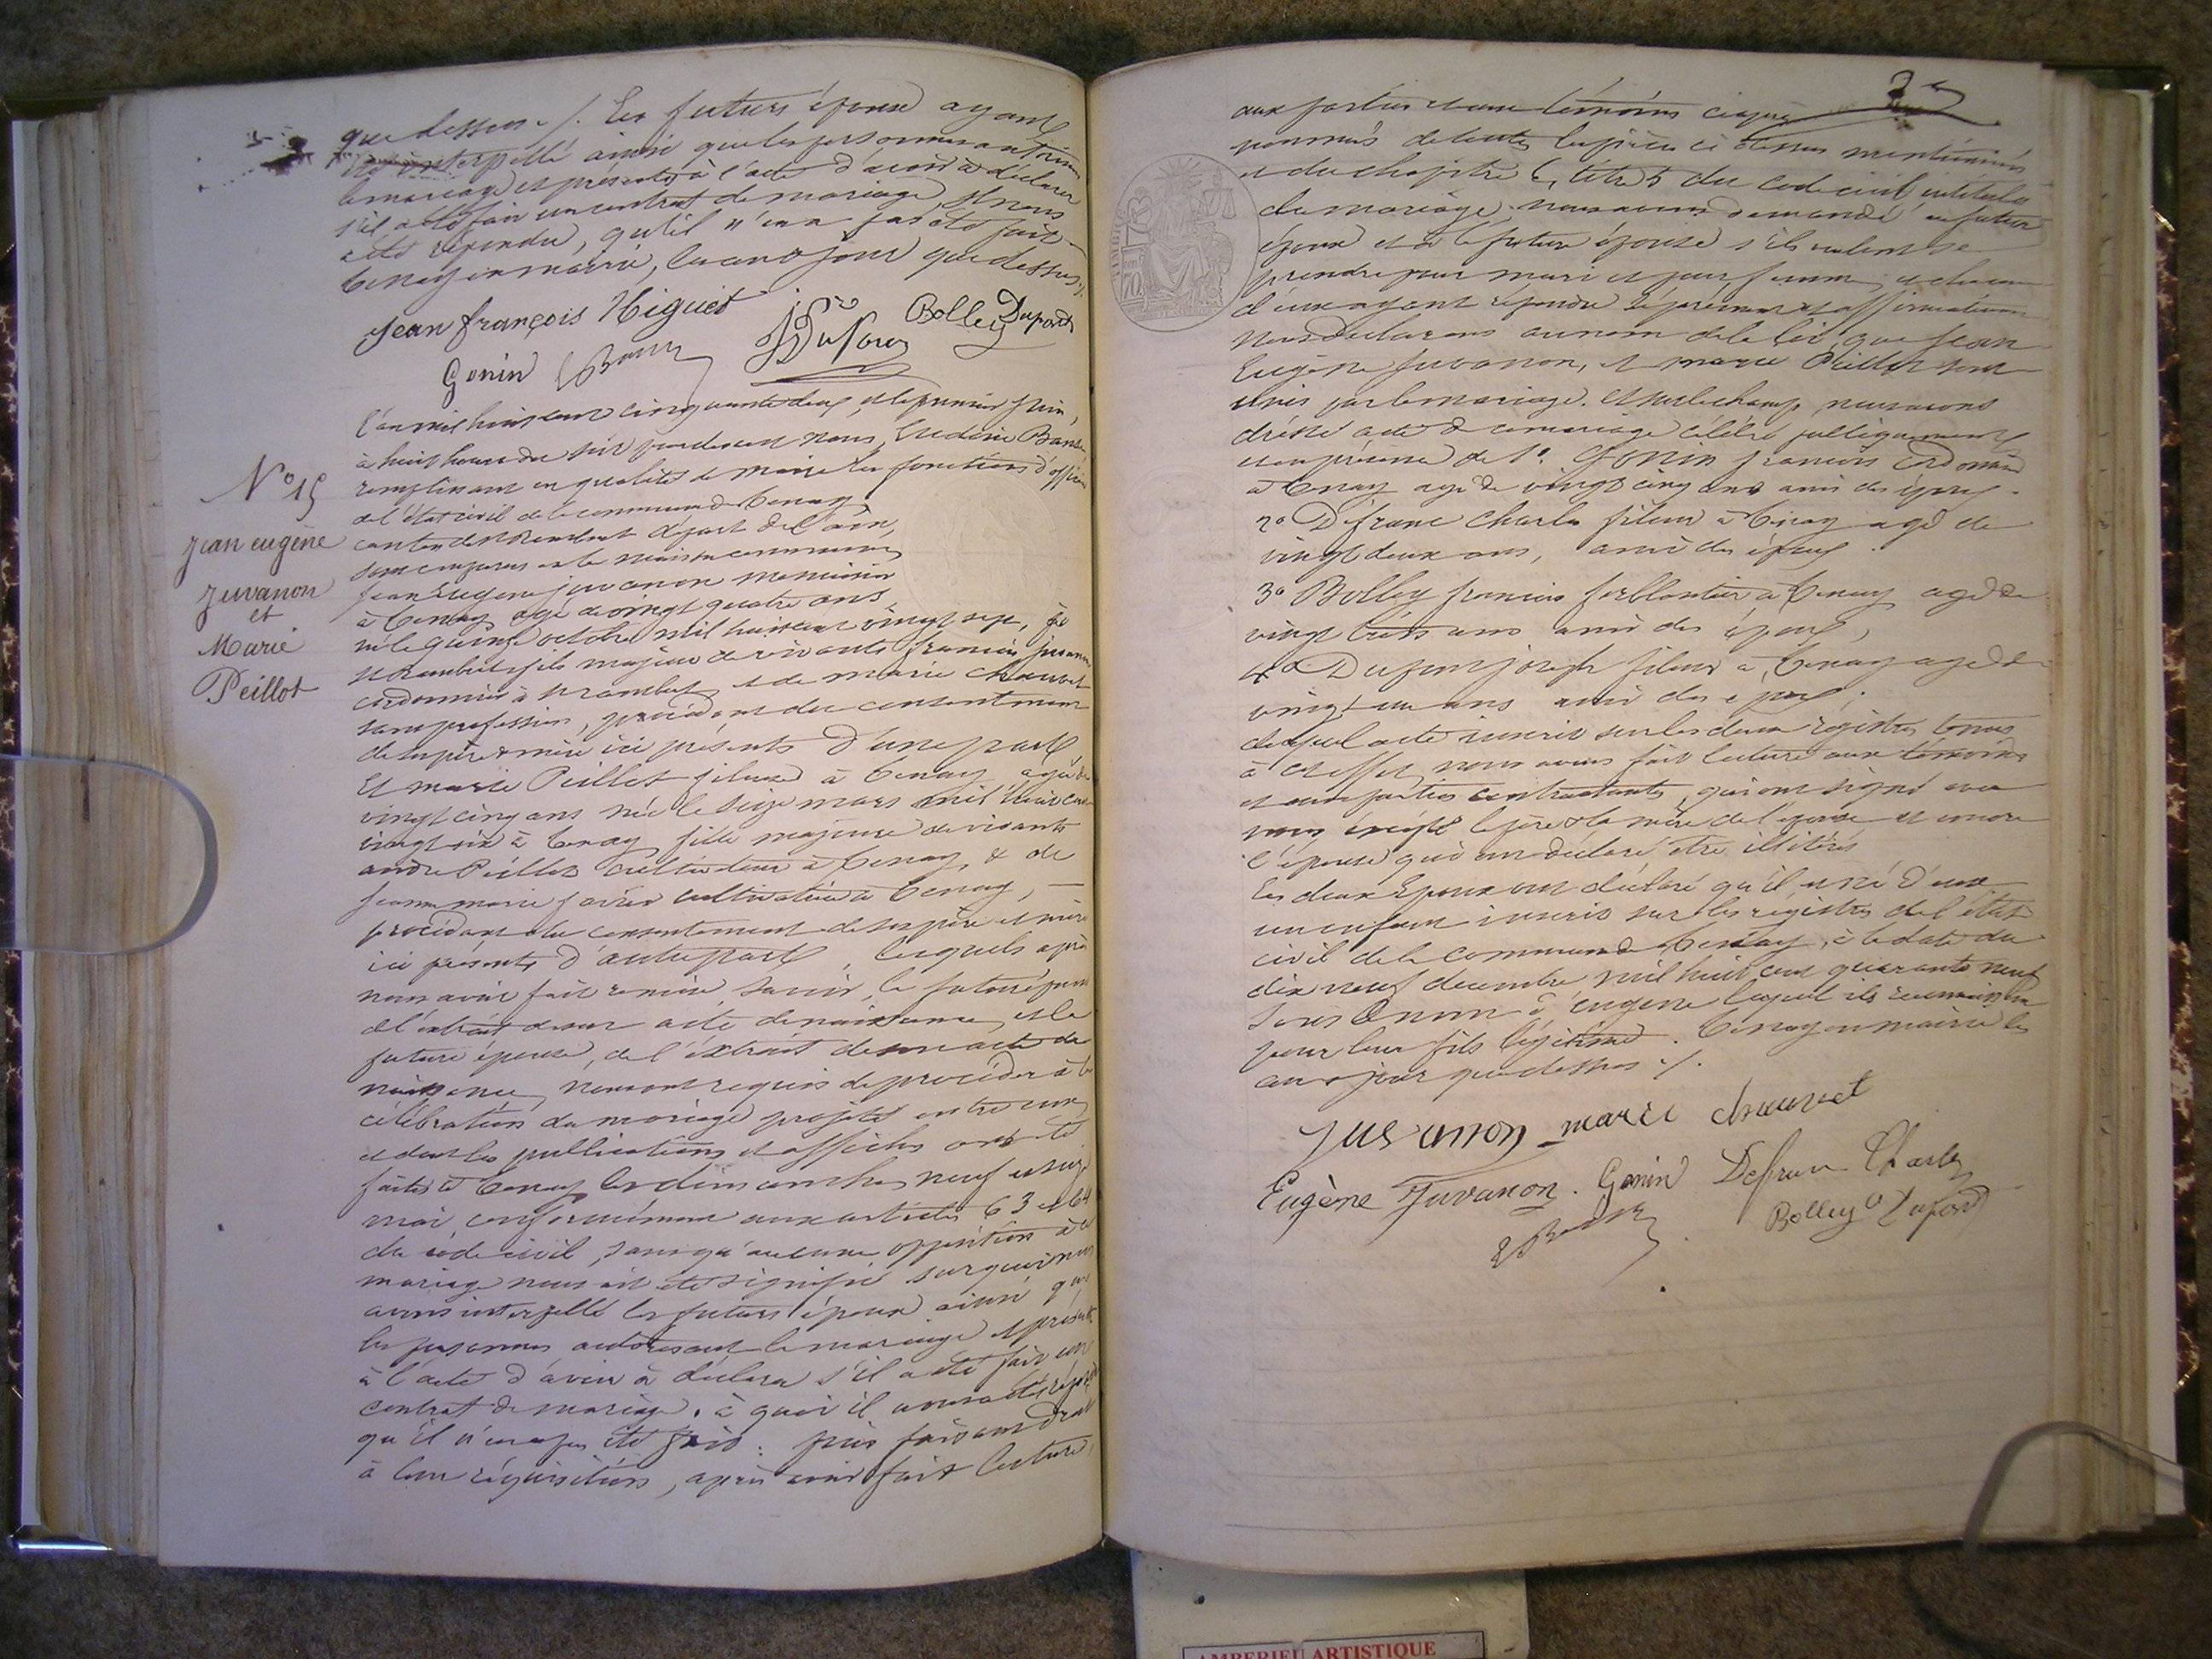 que dessus ./. Les futurs époux ayant
été interpellé ainsi que les personnes autorisant
le mariage et présentes à l'acte d'avoir à déclarer
s'il a été fait un contrat de mariage, il nous
a été répondu, qu'il n'en a pas été fait
Tenay en mairie, les an & jour que dessus ./.
Jean françois Niguet Bolley Dupont
Gonin
N° 15
Jean eugène
Juvanon
et
Marie
Peillot
L'an mil huit cent cinquante deux, & le premier juin,
à huit heures du soir par devant nous,
remplissant en qualité de maire les fonctions d'officier
de l'état civil de la commune de Tenay
canton de St Rambert départ. de l'ain,
sont comparus en la maison commune
Jean Eugène juvanon menuisier
à Tenay agé de vingt quatre ans
né le quinze octobre mil huit cent vingt sept, à
St Rambert fils majeur de vivants francois juvanon
cordonnier à St rambert et de marie chauvet
sans profession, procédant du consentement
de ses père & mère ici présents d'une part
Et marie Peillot fileuse à Tenay agée de
vingt cinq ans née le seize mars mil huit cent
vingt six à Tenay fille majeure de vivants
andré Peillot cultivateur à Tenay, & de
jeanne marie cultivatrice à Tenay, —
procédant du consentement de ses père et mère
ici présents d'autre part, lesquels après
nous avoir fait remise, savoir, le futur époux
de l'extrait de son acte de naissance, et la
future épouse, de l'extrait de son acte de
naissance, nous ont requis de procéder à la
célébration du mariage projeté entre eux
et dont les publications et affiches ont été
faites à Tenay les dimanches neuf et seize
mai conformément aux articles 63 et 64
du code civil, sans qu'aucune opposition à ce
mariage nous ait été signifié sur quoi nous
avons interpellé les futurs époux ainsi que
les personnes autorisant le mariage et présentes
à l'acte d'avoir à déclarer s'il a été fait un
contrat de mariage, à quoi il nous a été répondu
qu'il n'en a pas été fait. puis faisant droit
à leur réquisition, après avoir fait lecture
aux parties et aux témoins ci après
nommés de toutes les pièces ci dessus mentionnées
et du chapitre 6, titre 5 du code civil, intitulé
du mariage, nous avons demandé au futur
époux et à la future épouse s'ils veulent se
prendre pour mari et pour femme, et chacun
d'eux ayant répondu séparément et affirmativement
Nous déclarons au nom de la loi que Jean
Eugène Juvanon, et marie Peillot sont
unis par le mariage. et sur le champ nous avons
dressé acte de ce mariage célébré publiquement
et en présence de 1° Gonin francois cordonnier
à Tenay agé de vingt cinq ans ami des époux.
2° Defranc Charles fileur à Tenay agé de
vingt deux ans, ami des époux.
3° Bolley francois ferblantier à Tenay agé de
vingt trois ans ami des époux,
4° Dupont joseph fileur à Tenay agé de
vingt un ans ami des époux.
duquel acte inscrit sur les deux registres tenus
à cet effet, nous avons fait lecture aux témoins
et aux parties contractantes, qui ont signé avec
nous excepté le père & la mère de l'épouse et encore
l'épouse qui ont déclaré être illitérés
Les deux Epoux ont déclaré qu'il est né d'eux
un enfant inscrit sur les registres de l'état
civil de la commune de Tenay, à la date du
dix neuf decembre mil huit cent quarante neuf
sous le nom d'eugene lequel ils reconnaissent
pour leur fils légitime. Tenay en mairie les
an & jour que dessus ./.
Juvanon marie chauvet
Eugène Juvanon. Gonin Defranc Charles
Bolley Dupont
AMBERIEU ARTISTIQUE